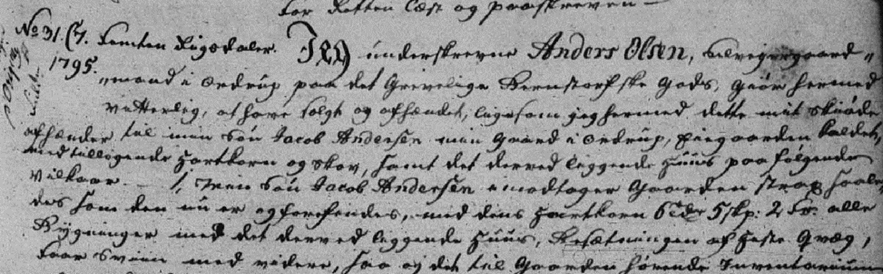 for Retten læst og paaskreven
No 31. C7. Femten Rigsdaler. Jeg underskrevne Anders Olsen, Selveiergaard=
1795. =mand i Ordrup paa det Grevelige Bernstorfske Gods, Giør hermed
vitterlig, at have solgt og afhændet, ligesom jeg hermed dette mit Skiøde
afhænder til min Søn Jacob Andersen min Gaard i Ordrup, Piegaarden kaldet,
med tilliggende Hartkorn og Skov, samt det derved leggende Huus paa følgende
vilkaar. 1, Min Søn Jacob Andersen modtager Gaarden strax saale=
des som den nu er og forefindes, med dens Hartkorn 6 Tdr 5 skp: 2 Fr. alle
Bygninger med det derved leggende Huus, Besætningen af Heste Qvæg,
Faar Sviin med videre, saa og det til Gaarden hørende Inventarium